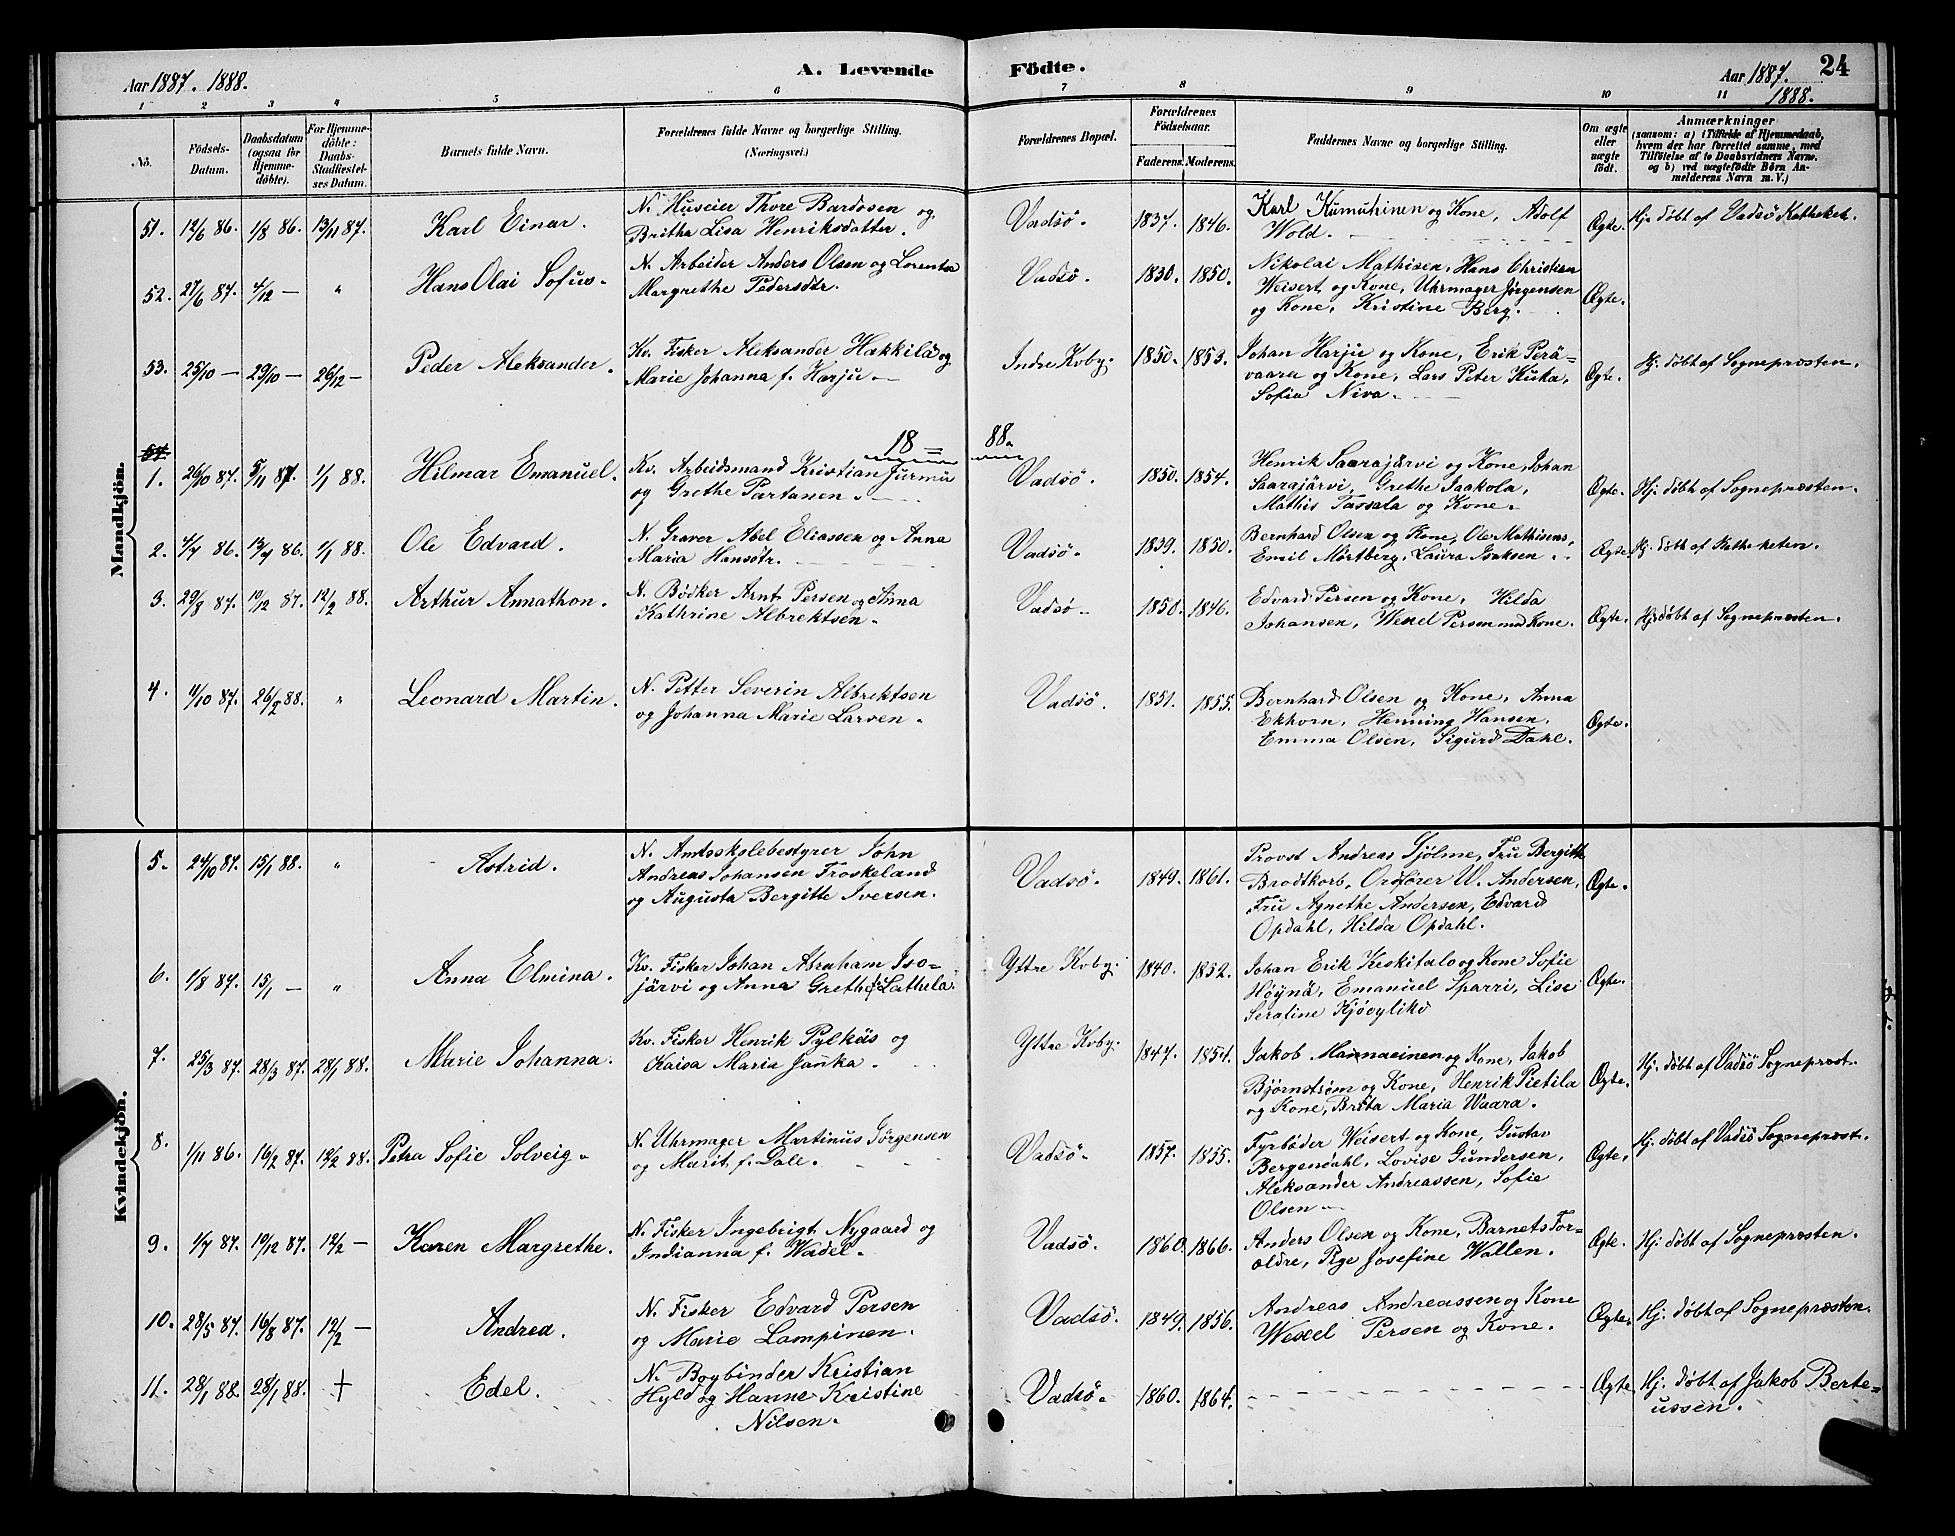 Aar 1887. 1888.
A. Levende
Födte.
Aar 1887. 1888.
24
1 2 3 4 5 6 7 8 9 10 11
No.
Födsels-Datum.
Daabsdatum (ogsaa for Hjemme-döbte).
For Hjemme-döbte: Daabs-Stadfæstel-ses Datum.
Barnets fulde Navn.
Forældrenes fulde Navne og borgerlige Stilling. (Næringsvei.)
Forældrenes Bopæl.
Forældrenes Födselsaar.
Faderens. Moderens.
Faddernes Navne og borgerlige Stilling.
Om ægte eller uægte födt.
Anmærkninger (saasom: a) i Tilfælde af Hjemmedaab, hvem der har forrettet samme, med Tilföielse af to Daabsvidners Navne, og b) ved uægtefödte Börn An-melderens Navn m. V.)
Mandkjön.
51. 12/6 86. 1/8 86. 13/11 87. Karl Einar.
N. Huseier Thore Bardosen og
Britha Lisa Henriksdatter.
Vadsö. 1837. 1846.
Karl Kumuhinen og Kone, Adolf
Wold.
Ægte. Hj. döbt af Vadsö Katheket.
52. 27/6 87. 4/12 — " Hans Olai Sofus.
N. Arbeider Anders Olsen og Lorentse
Margrethe Pedersdtr.
Vadsö. 1830. 1850.
Nikolai Mathisen, Hans Christian
Weisert og Kone, Uhrmager Jörgensen
og Kone, Kristine Berg.
Ægte.
53. 25/10 — 29/10 — 26/12 — Peder Aleksander.
Kv. Fisker Aleksander Hakkila og
Marie Johanna f. Harju.
Indre Kvby. 1850. 1853.
Johan Harju og Kone, Erik Perä-
vaara og Kone, Lars Peter Kuka,
Sofia Niva.
Ægte. Hj. döbt af Sognepræsten.
18 = 88.
54.
1. 26/10 87. 5/11 87. 1/1 88. Hilmar Emanuel.
Kv. Arbeidsmand Kristian Jurmu
og Grethe Partanen.
Vadsö. 1850. 1854.
Henrik Saarajärvi og Kone, Johan
Saarajärvi, Grethe Jaakola,
Mathis Tassala og Kone.
Ægte. Hj. döbt af Sognepræsten.
2. 4/7 86. 13/7 86. 1/1 88. Ole Edvard.
N. Graver Abel Eliassen og Anna
Maria Hansdtr.
Vadsö. 1839. 1850.
Bernhard Olsen og Kone, Ole Mathisens,
Emil Mörtberg, Laura Isaksen.
Ægte. Hj. döbt af Katheketen.
3. 29/8 87. 10/12 87. 12/2 88. Arthur Annathon.
N. Bödker Arnt Persen og Anna
Kathrine Albrektsen.
Vadsö. 1850. 1846.
Edvard Persen og Kone, Hilda
Johansen, Wexel Persen med Kone.
Ægte. Hj. döbt af Sognepræsten.
4. 11/10 87. 26/2 88. " Leonard Martin.
N. Petter Severin Albrektsen
og Johanna Marie Larsen.
Vadsö. 1851. 1855.
Bernhard Olsen og Kone, Anna
Ekhorn, Henning Hansen,
Emma Olsen, Sigurd Dahl.
Ægte.
Kvindekjön.
5. 24/10 87. 15/1 88. " Astrid.
N. Amtsskolebestyrer John
Andreas Johansen Froskeland
og Augusta Bergitte Iversen.
Vadsö. 1849. 1861.
Provst Andreas Gjölme, Fru Bergitte
Brodtkorb, Ordförer W. Andersen,
Fru Agnethe Andersen, Edvard
Opdahl, Hilda Opdahl.
Ægte.
6. 1/8 87. 15/1 — " Anna Elmina.
Kv. Fisker Johan Abraham Iso-
järvi og Anna Grethe f. Lathela.
Yttre Kvby. 1840. 1852.
Johan Erik Keskitalo og Kone Sofie
Höynä, Emanuel Sparri, Lise
Serafine Kjövylikö
Ægte.
7. 25/3 87. 28/3 87. 28/1 88. Marie Johanna.
Kv. Fisker Henrik Pylkäs og
Kaisa Maria Junka.
Yttre Kvby. 1847. 1854.
Jakob Mannaeinen og Kone, Jakob
Björnström og Kone, Henrik Pietila
og Kone, Brita Maria Waara.
Ægte. Hj. döbt af Vadsö Sognepræst.
8. 1/11 86. 16/2 87. 12/2 88. Petra Sofie Solveig.
N. Uhrmager Martinus Jörgensen
og Marit f. Dall.
Vadsö. 1857. 1855.
Fyrböder Weisert og Kone, Gustav
Bergendahl, Lovise Gundersen,
Aleksander Andreassen, Sofie
Olsen
Ægte. Hj. döbt af Vadsö Sognepræst.
9. 1/7 87. 19/12 87. 12/2 — Karen Margrethe.
N. Fisker Ingebrigt Nygaard og
Indianna f. Wadel.
Vadsö. 1860. 1866.
Anders Olsen og Kone, Barnets For-
ældre, Pige Josefine Wallen.
Ægte. Hj. döbt af Sognepræsten.
10. 28/5 87. 16/8 87. 12/2 — Andrea.
N. Fisker Edvard Persen
og Marie Lampinen.
Vadsö. 1849. 1856.
Andreas Andreassen og Kone
Wexel Persen og Kone.
Ægte. Hj. döbt af Sognepræsten.
11. 28/1 88. 28/1 88. † Edel.
N. Bogbinder Kristian
Hyld og Hanne Kristine
Nilsen.
Vadsö. 1860. 1864.
Ægte Hj. döbt af Jakob Berte-
ussen.